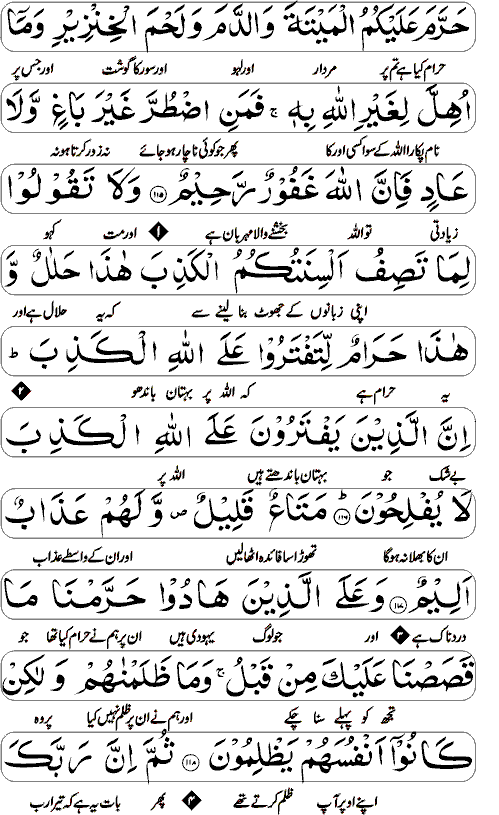 حَرَّمَ عَلَيْكُمُ الْمَيْتَةَ وَالدَّمَ وَلَحْمَ الْخِنْزِيْرِ وَمَآ
حرام کیا ہے تم پر مردار اور لہو اور سور کا گوشت اور جس پر
اُهِلَّ لِغَيْرِ اللّٰهِ بِهٖ ۚ فَمَنِ اضْطُرَّ غَيْرَ بَاغٍ وَّلَا
نام پکارا اللہ کے سوا کسی اور کا پھر جو کوئی ناچار ہو جائے نہ زور کرتا ہو نہ
عَادٍ فَاِنَّ اللّٰهَ غَفُوْرٌ رَّحِيْمٌ ۝۱۱۵ وَلَا تَقُوْلُوْا
زیادتی تو اللہ بخشنے والا مہربان ہے ۱ اور مت کہو
لِمَا تَصِفُ اَلْسِنَتُكُمُ الْكَذِبَ هٰذَا حَلٰلٌ وَّ
اپنی زبانوں کے جھوٹ بنا لینے سے کہ یہ حلال ہے اور
هٰذَا حَرَامٌ لِّتَفْتَرُوْا عَلَى اللّٰهِ الْكَذِبَ ؕ
یہ حرام ہے کہ اللہ پر بہتان باندھو ۲
اِنَّ الَّذِيْنَ يَفْتَرُوْنَ عَلَى اللّٰهِ الْكَذِبَ
بے شک جو بہتان باندھتے ہیں اللہ پر
لَا يُفْلِحُوْنَ ؕ۝۱۱۶ مَتَاعٌ قَلِيْلٌ ۪ وَّلَهُمْ عَذَابٌ
ان کا بھلا نہ ہوگا تھوڑا سا فائدہ اٹھا لیں اور ان کے واسطے عذاب
اَلِيْمٌ ۝۱۱۷ وَعَلَى الَّذِيْنَ هَادُوْا حَرَّمْنَا مَا
دردناک ہے ۳ اور جو لوگ یہودی ہیں ان پر ہم نے حرام کیا تھا جو
قَصَصْنَا عَلَيْكَ مِنْ قَبْلُ ۚ وَمَا ظَلَمْنٰهُمْ وَلٰكِنْ
تجھ کو پہلے سنا چکے اور ہم نے ان پر ظلم نہیں کیا پر وہ
كَانُوْٓا اَنْفُسَهُمْ يَظْلِمُوْنَ ۝۱۱۸ ثُمَّ اِنَّ رَبَّكَ
اپنے اوپر آپ ظلم کرتے تھے ۴ پھر بات یہ ہے کہ تیرا رب